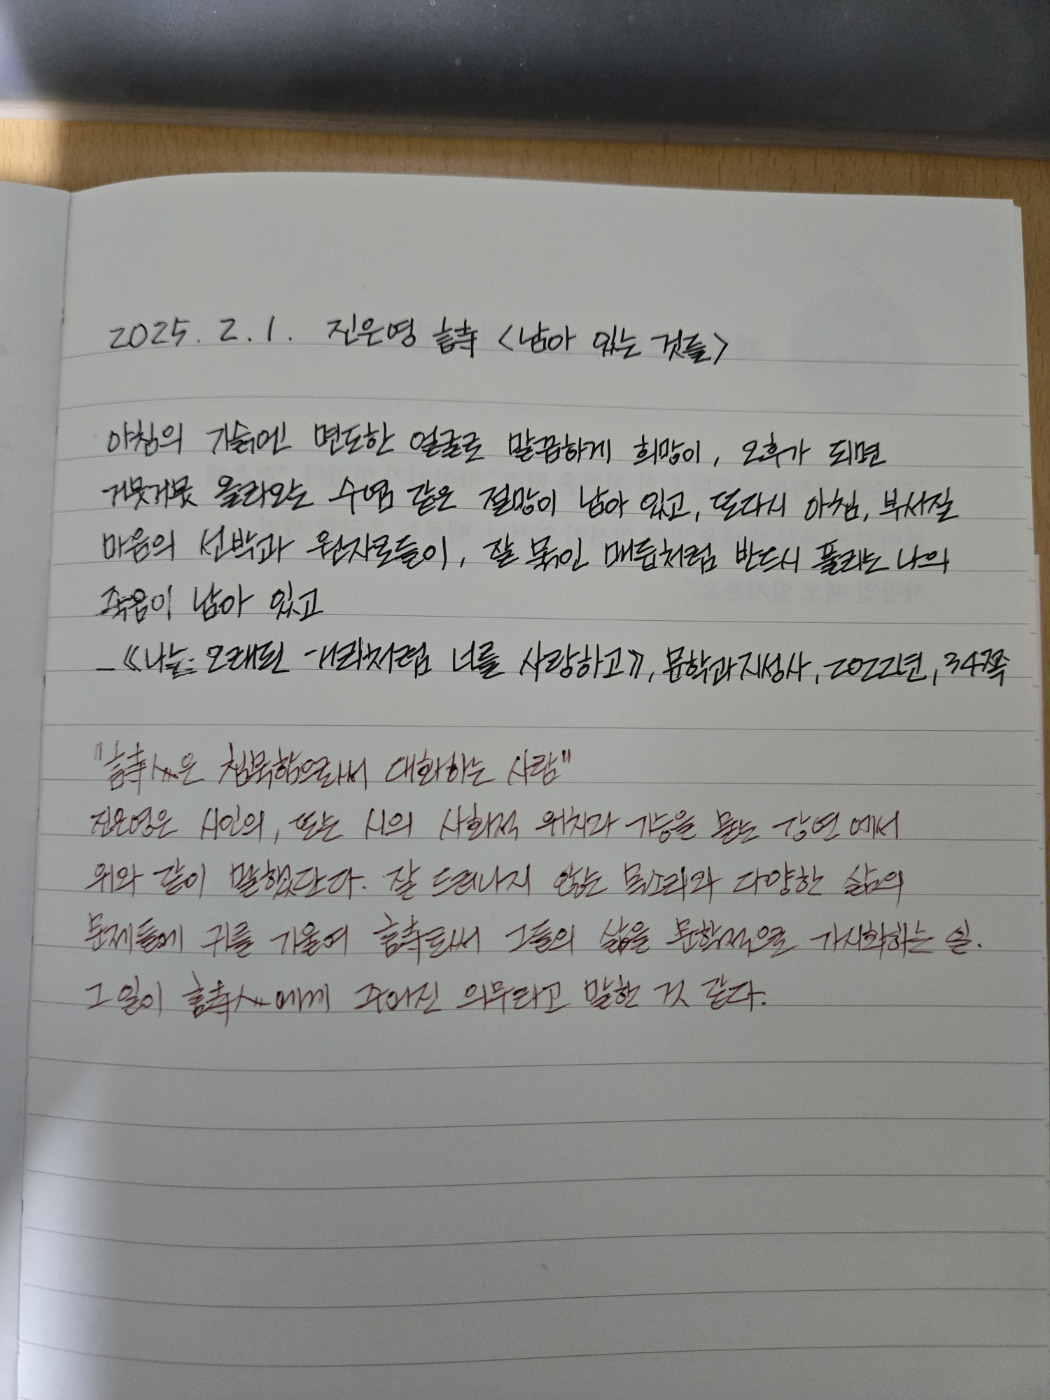 2025. 2. 1. 진은영 詩 <남아 있는 것들>
아침의 가슴엔 면도한 얼굴로 말끔하게 희망이, 오후가 되면
거뭇거뭇 올라오는 수염 같은 절망이 남아 있고, 또다시 아침, 부서질
마음의 선박과 원자로들이, 잘 묶인 매듭처럼 반드시 풀리는 나의
죽음이 남아 있고
_《나는 오래된 거리처럼 너를 사랑하고》, 문학과지성사, 2022년, 34쪽
"詩人은 침묵함으로써 대화하는 사람"
진은영은 시인의, 또는 시의 사회적 위치와 기능을 묻는 강연에서
위와 같이 말했단다. 잘 드러나지 않는 목소리와 다양한 삶의
문제들에 귀를 기울여 詩로써 그들의 삶을 문학적으로 가시화하는 일.
그 일이 詩人에게 주어진 의무라고 말한 것 같다.